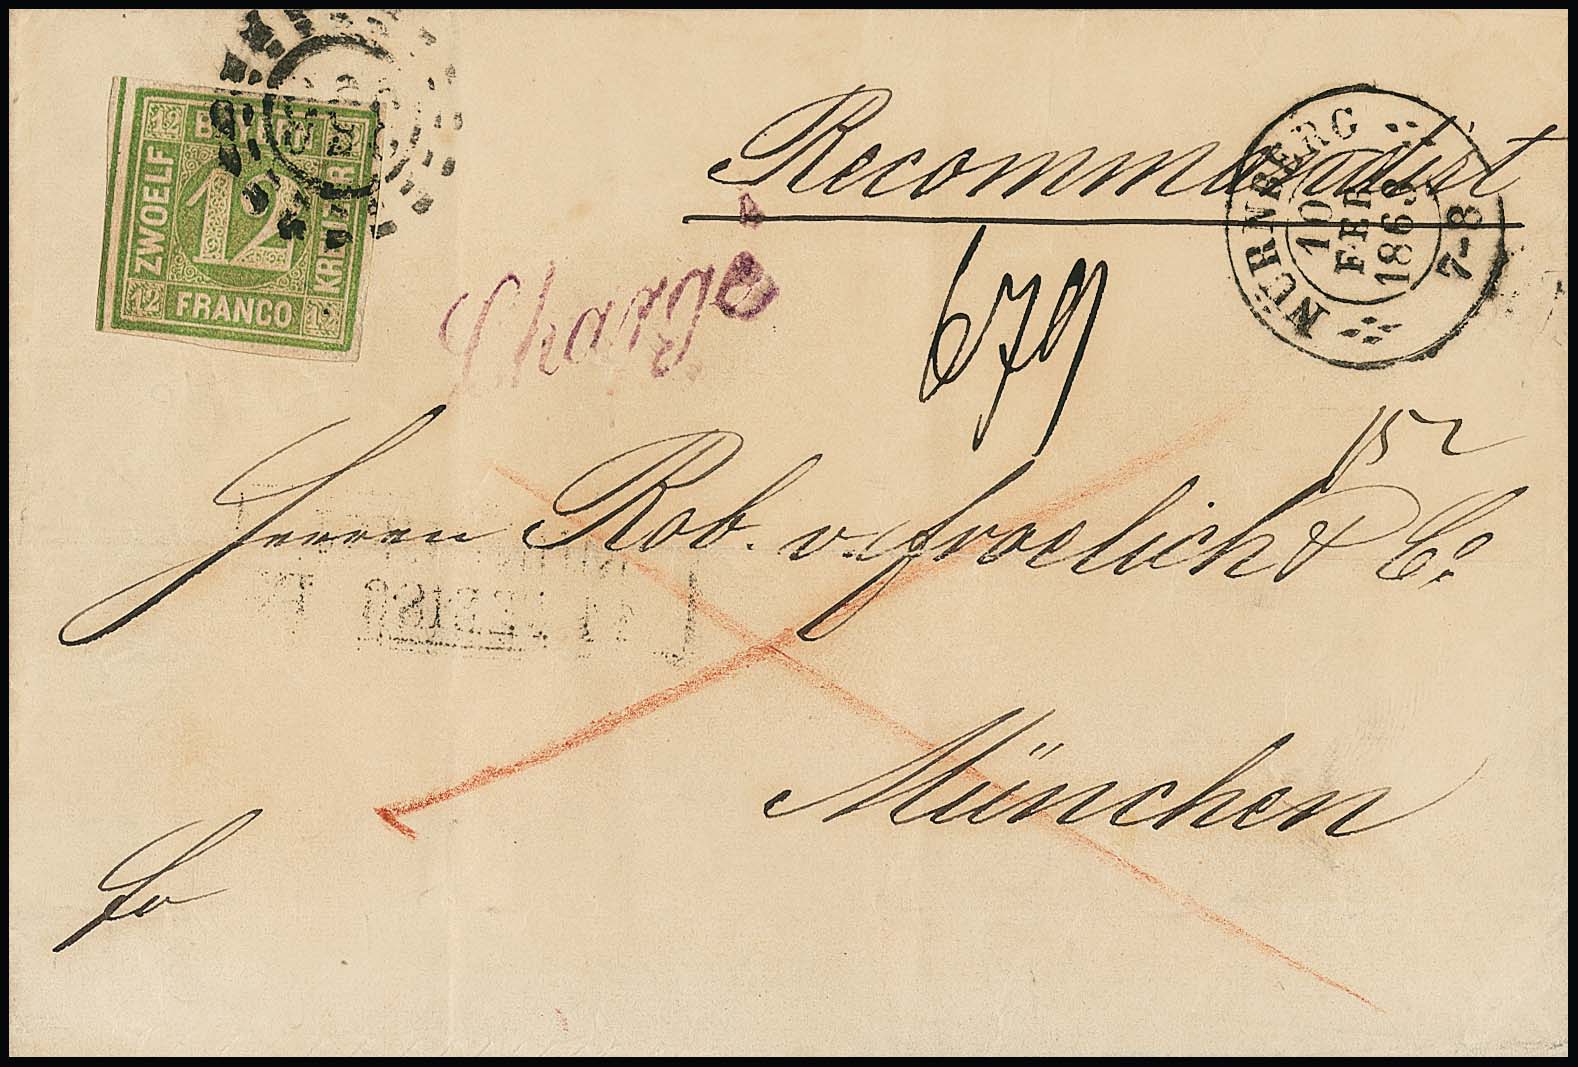 12
BAYERN
ZWOELF
12
KREUZER
12 FRANCO 12
Recommandirt
NÜRNBERG
10
FEB
7-8
Chargé
679
Herrn Rob. v. Froelich & Co
München
fo